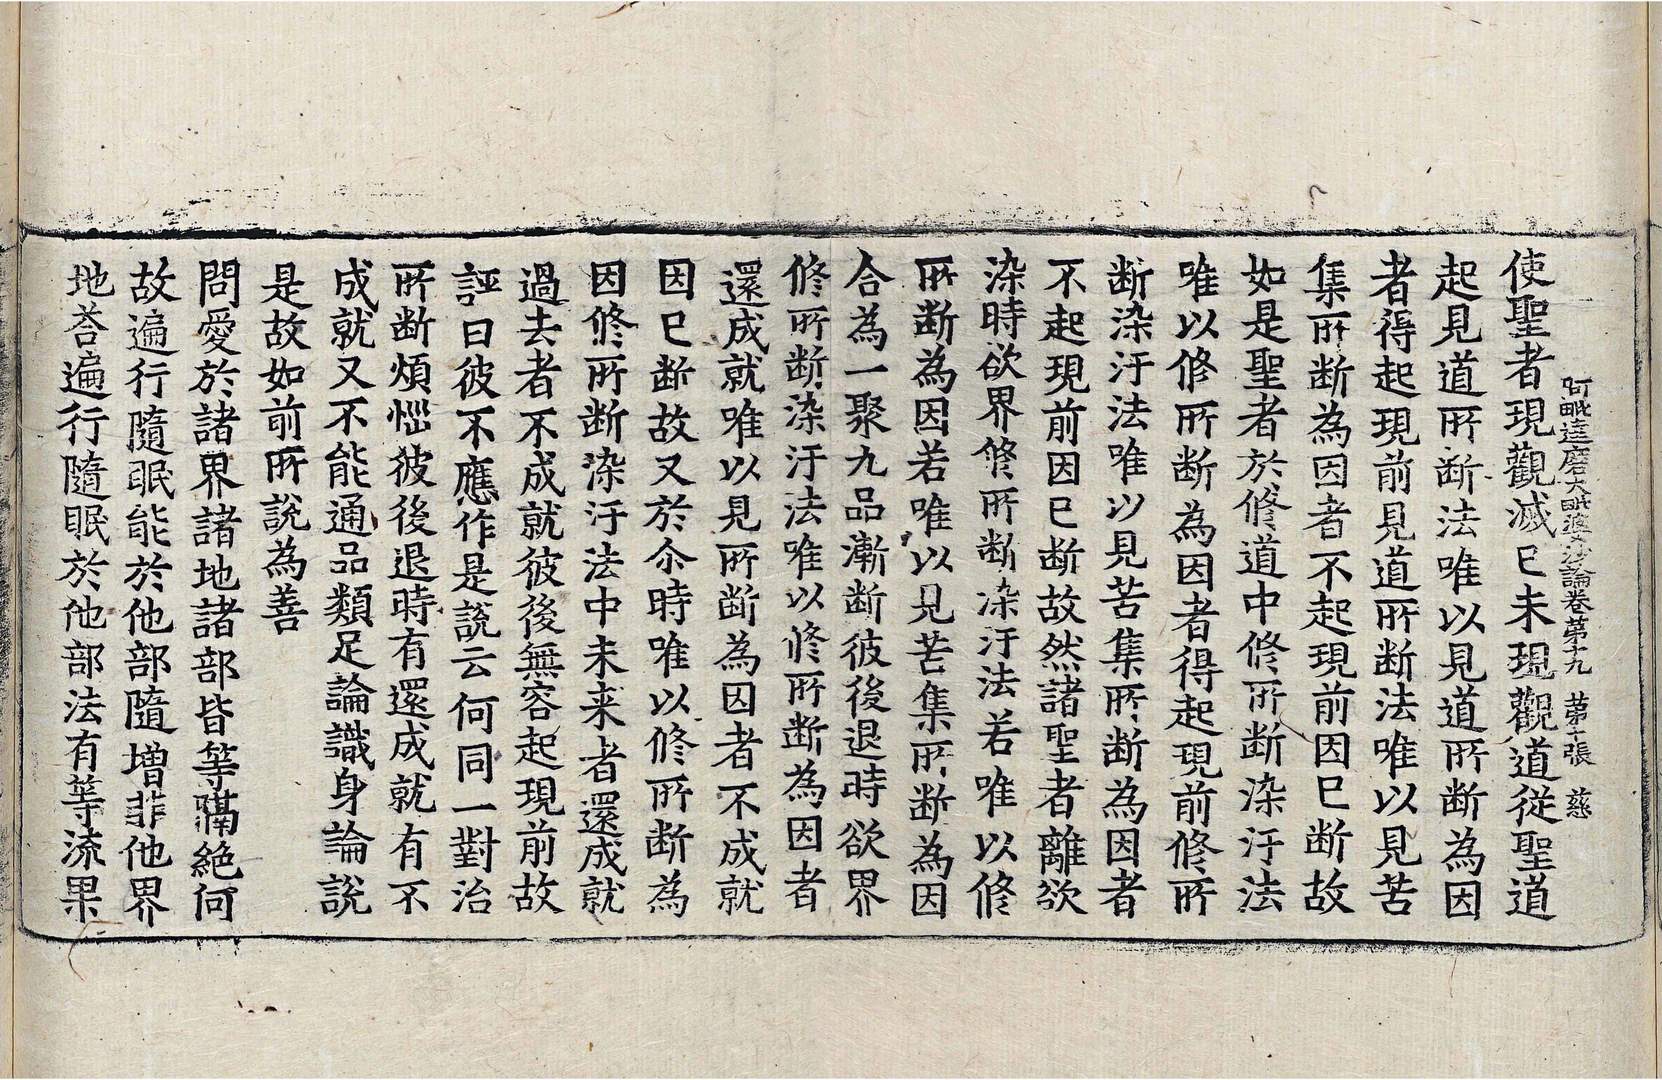 阿毗達磨大毗婆沙論卷苐十九 苐十張 慈
使聖者現觀滅已未現觀道從聖道
起見道所断法唯以見道所断為因
者得起現前見道所断法唯以見苦
集所断為因者不起現前因已断故
如是聖者於修道中修所断染汙法
唯以修所断為因者得起現前修所
断染汙法唯以見苦集所断為因者
不起現前因已断故然諸聖者離欲
染時欲界修所断染汙法若唯以修
所断為因若唯以見苦集所断為因
合為一聚九品漸断彼後退時欲界
修所断染汙法唯以修所断為因者
還成就唯以見所断為因者不成就
因已断故又於尒時唯以修所断為
因修所断染汙法中未来者還成就
過去者不成就彼後無容起現前故
評曰彼不應作是說云何同一對治
所断煩惱彼後退時有還成就有不
成就又不能通品類足論識身論說
是故如前所說為善
問愛於諸界諸地諸部皆等𭹹絶何
故遍行隨眠能於他部隨増非他界
地荅遍行隨眠於他部法有等流果